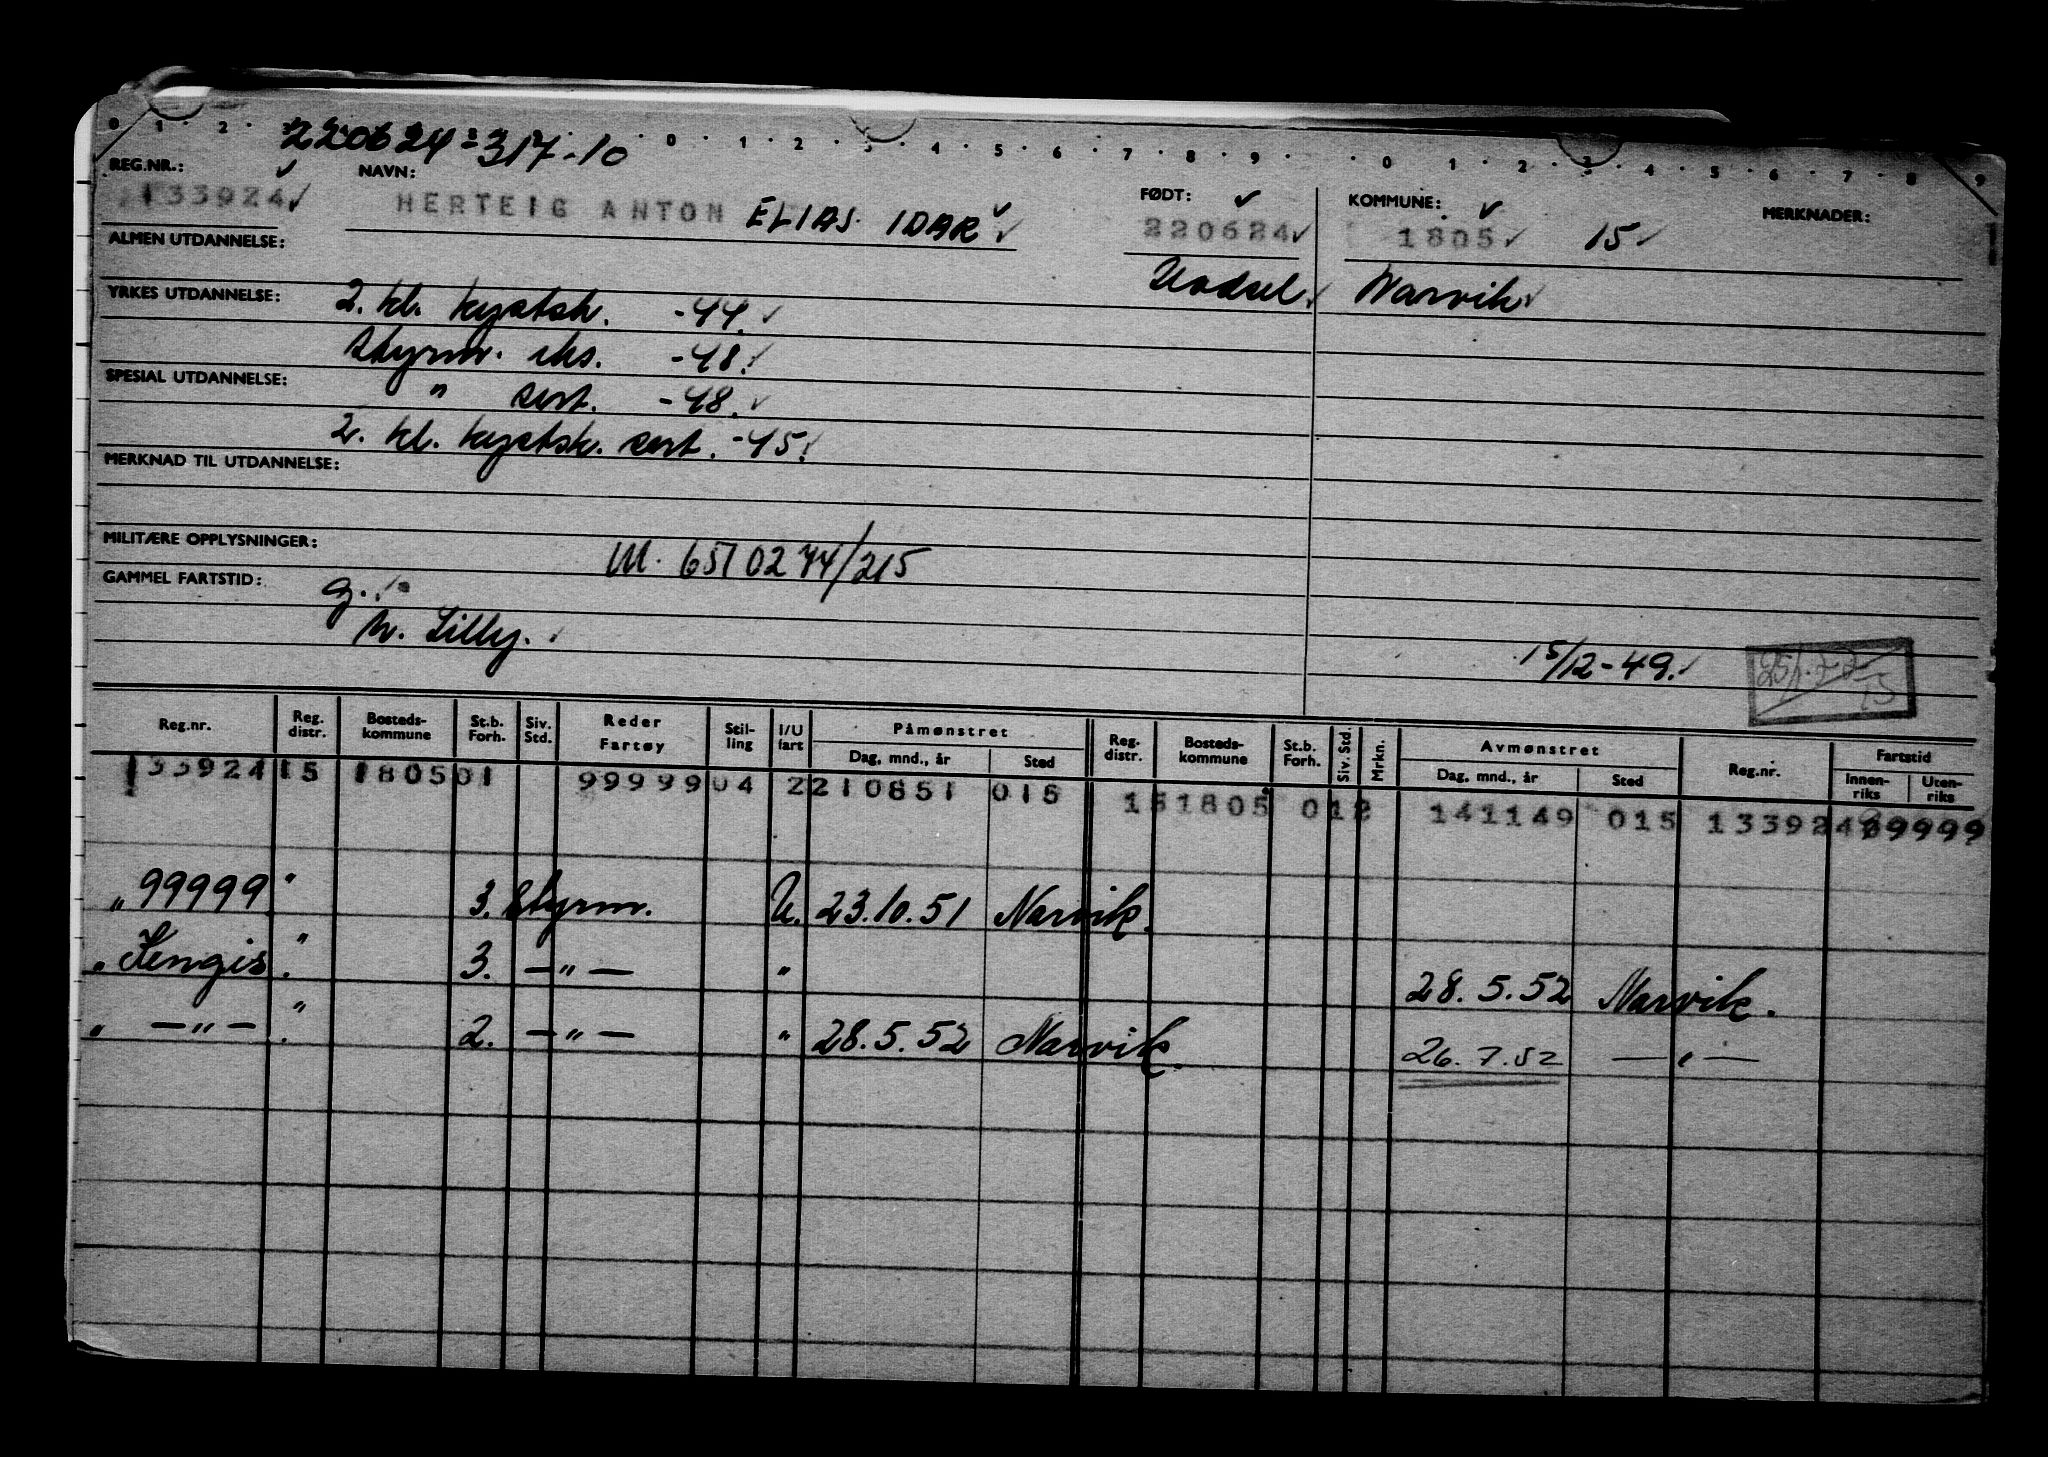 0 1 2 0 1 2 3 4 5 6 7 8 9 0 1 2 3 4 5 6 7 8 9
220624-317-10
REG.NR.: NAVN: FØDT: KOMMUNE: MERKNADER:
133924 HERTEIG ANTON ELIAS IDAR 220624 1805 15
ALMEN UTDANNELSE:
Hadsel Narvik
YRKES UTDANNELSE: 2. kl. kystsk. -44.
Styrm. eks. -48.
SPESIAL UTDANNELSE:
" sert. -48.
2. kl. kystsk. sert. -45.
MERKNAD TIL UTDANNELSE:
MILITÆRE OPPLYSNINGER: M. 6510274/215
GAMMEL FARTSTID: g.
h. Lilly.
15/12-49.
Reg.nr. Reg. distr. Bosteds- kommune St.b. Forh. Siv. Std. Reder Fartøy Stil- ling I/U fart Påmønstret Reg. distr. Bosteds- kommune St.b. Forh. Siv. Std. Mrkn. Avmønstret Reg.nr. Fartstid
Dag, mnd., år Sted Dag, mnd., år Sted Innen- riks Uten- riks
133924 15 1805 01 99999 04 2 210851 015 15 1805 01 2 141149 015 133924 99999
" 99999 " 3. Styrm. U. 23.10.51 Narvik.
" Kengis " 3. —"— " 28.5.52 Narvik.
" —"— " 2. —"— " 28.5.52 Narvik. 26.7.52 —"—